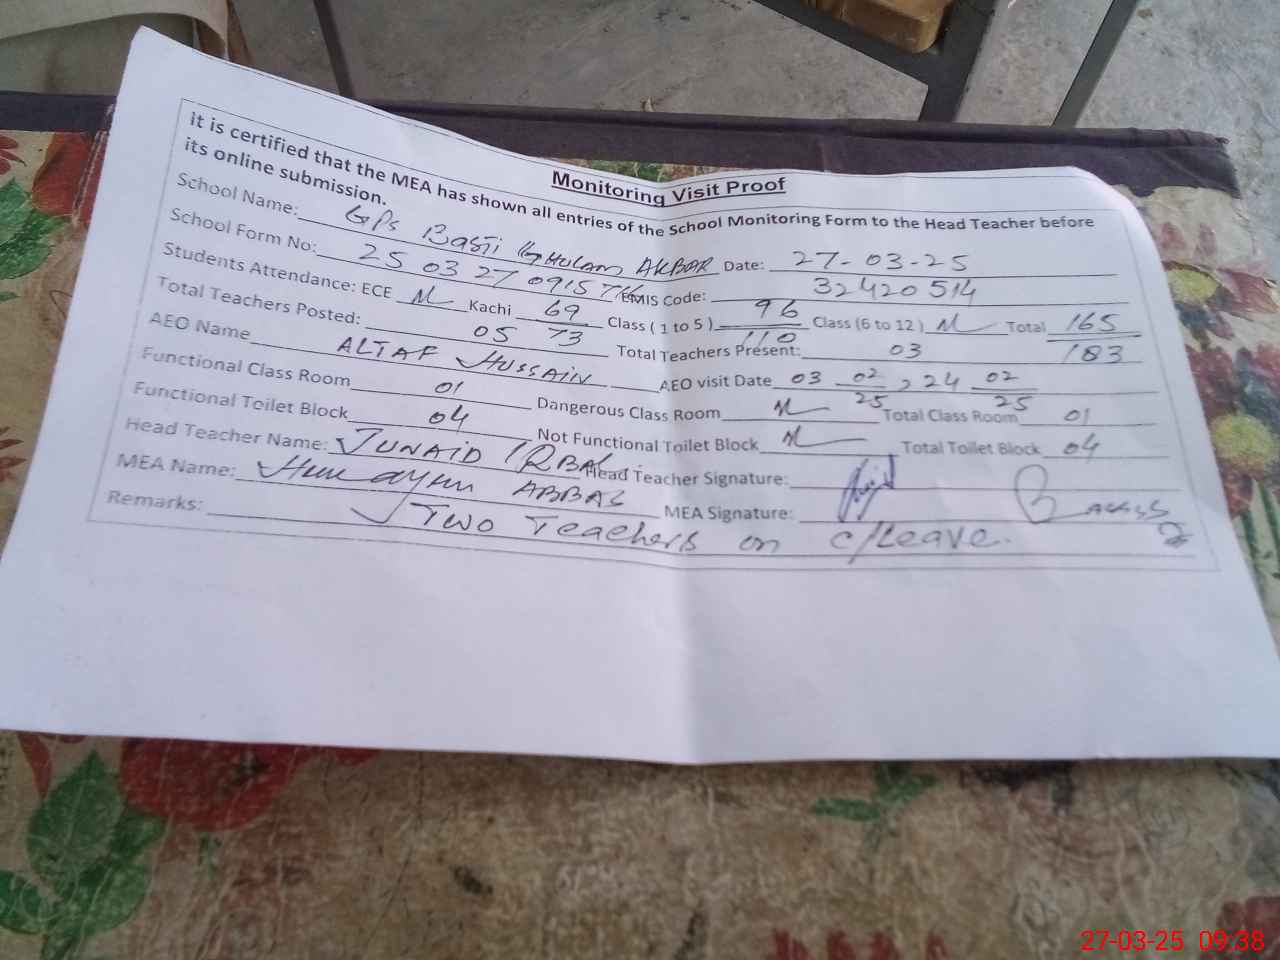 Monitoring Visit Proof
it is certified that the MEA has shown all entries of the School Monitoring Form to the Head Teacher before
its online submission.
School Name: GPS Basti GHULAM AKBAR Date: 27-03-25
School Form No: 25 03 27 0915 EMIS Code: 32420514
Students Attendance: ECE Kachi 69/73 Class ( 1 to 5 ) 96/110 Class (6 to 12) Total 165/183
Total Teachers Posted: 05 Total Teachers Present: 03
AEO Name ALTAF HUSSAIN AEO visit Date 03 02/25, 24 02/25
Functional Class Room 01 Dangerous Class Room Total Class Room 01
Functional Toilet Block 04 Not Functional Toilet Block Total Toilet Block 04
Head Teacher Name: JUNAID IQBAL Head Teacher Signature:
MEA Name: Humayun ABBAS MEA Signature:
Remarks: Two Teachers on c/Leave.
27-03-25 09:38